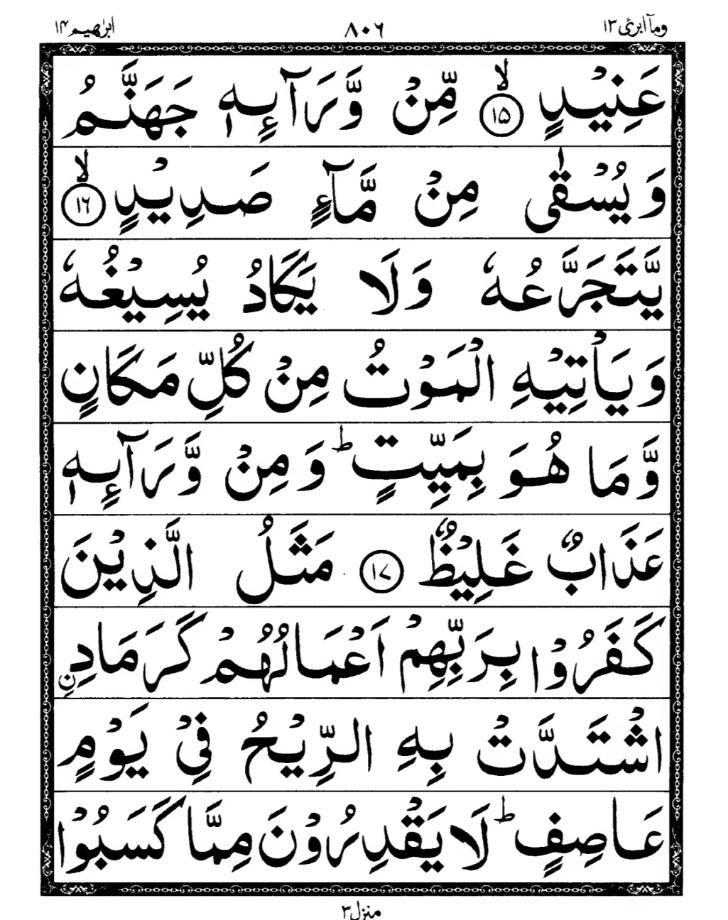 ومآ ابرئ ۱۳ ۸۰۶ ابرٰهيم ۱۴
عَنِيْدٍ ۙ﴿۱۵﴾ مِّنْ وَّرَآئِهٖ جَهَنَّمُ
وَيُسْقٰى مِنْ مَّآءٍ صَدِيْدٍ ۙ﴿۱۶﴾
يَّتَجَرَّعُهٗ وَلَا يَكَادُ يُسِيْغُهٗ
وَيَاْتِيْهِ الْمَوْتُ مِنْ كُلِّ مَكَانٍ
وَّمَا هُوَ بِمَيِّتٍ ؕ وَمِنْ وَّرَآئِهٖ
عَذَابٌ غَلِيْظٌ ﴿۱۷﴾ مَثَلُ الَّذِيْنَ
كَفَرُوْا بِرَبِّهِمْ اَعْمَالُهُمْ كَرَمَادِ نِ
اشْتَدَّتْ بِهِ الرِّيْحُ فِيْ يَوْمٍ
عَاصِفٍ ؕ لَا يَقْدِرُوْنَ مِمَّا كَسَبُوْا
منزل ۳